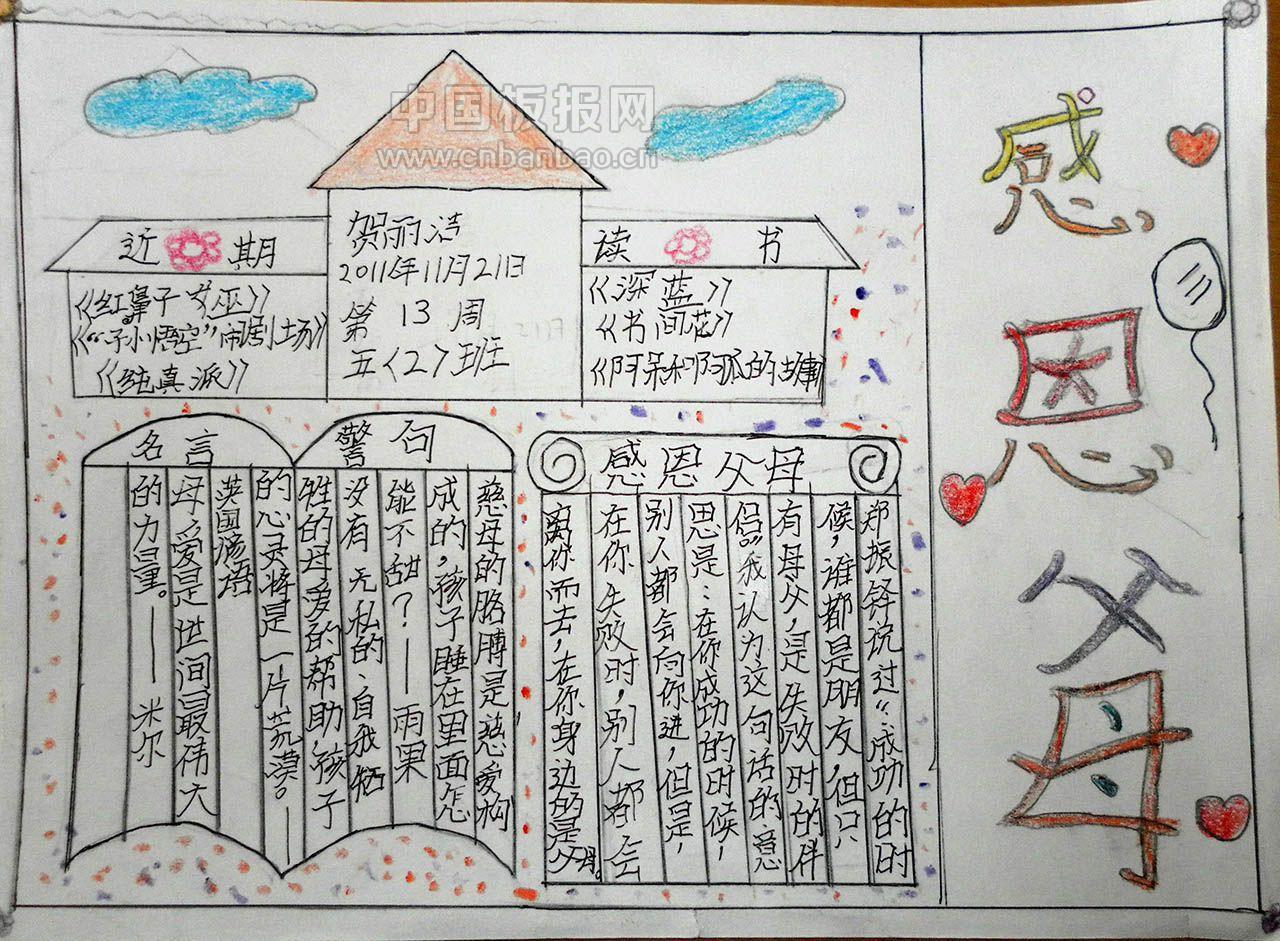 中国板报网
www.cnbanbao.cn
近期
《红鼻子女巫》
《“子小悟空”闹剧土场》
《纯真派》
贺丽洁
2011年11月21日
第13周
五〈2〉班
读书
《深蓝》
《书间花》
《阿呆和阿瓜的故事》
感恩父母
名言警句
慈母的胳膊是慈爱构
成的，孩子睡在里面怎
能不甜？——雨果
没有无私的、自我牺
牲的母爱的帮助，孩子
的心灵将是一片荒漠。——
英国
母爱是世间最伟大
的力量。——米尔
感恩父母
郑振铎说过：“成功的时
候，谁都是朋友，但只
有母父，是失败时的伴
侣”我认为这句话的意
思是：在你成功的时候，
别人都会向你进，但是，
在你失败时，别人都会
离你而去，在你身边的是父母。